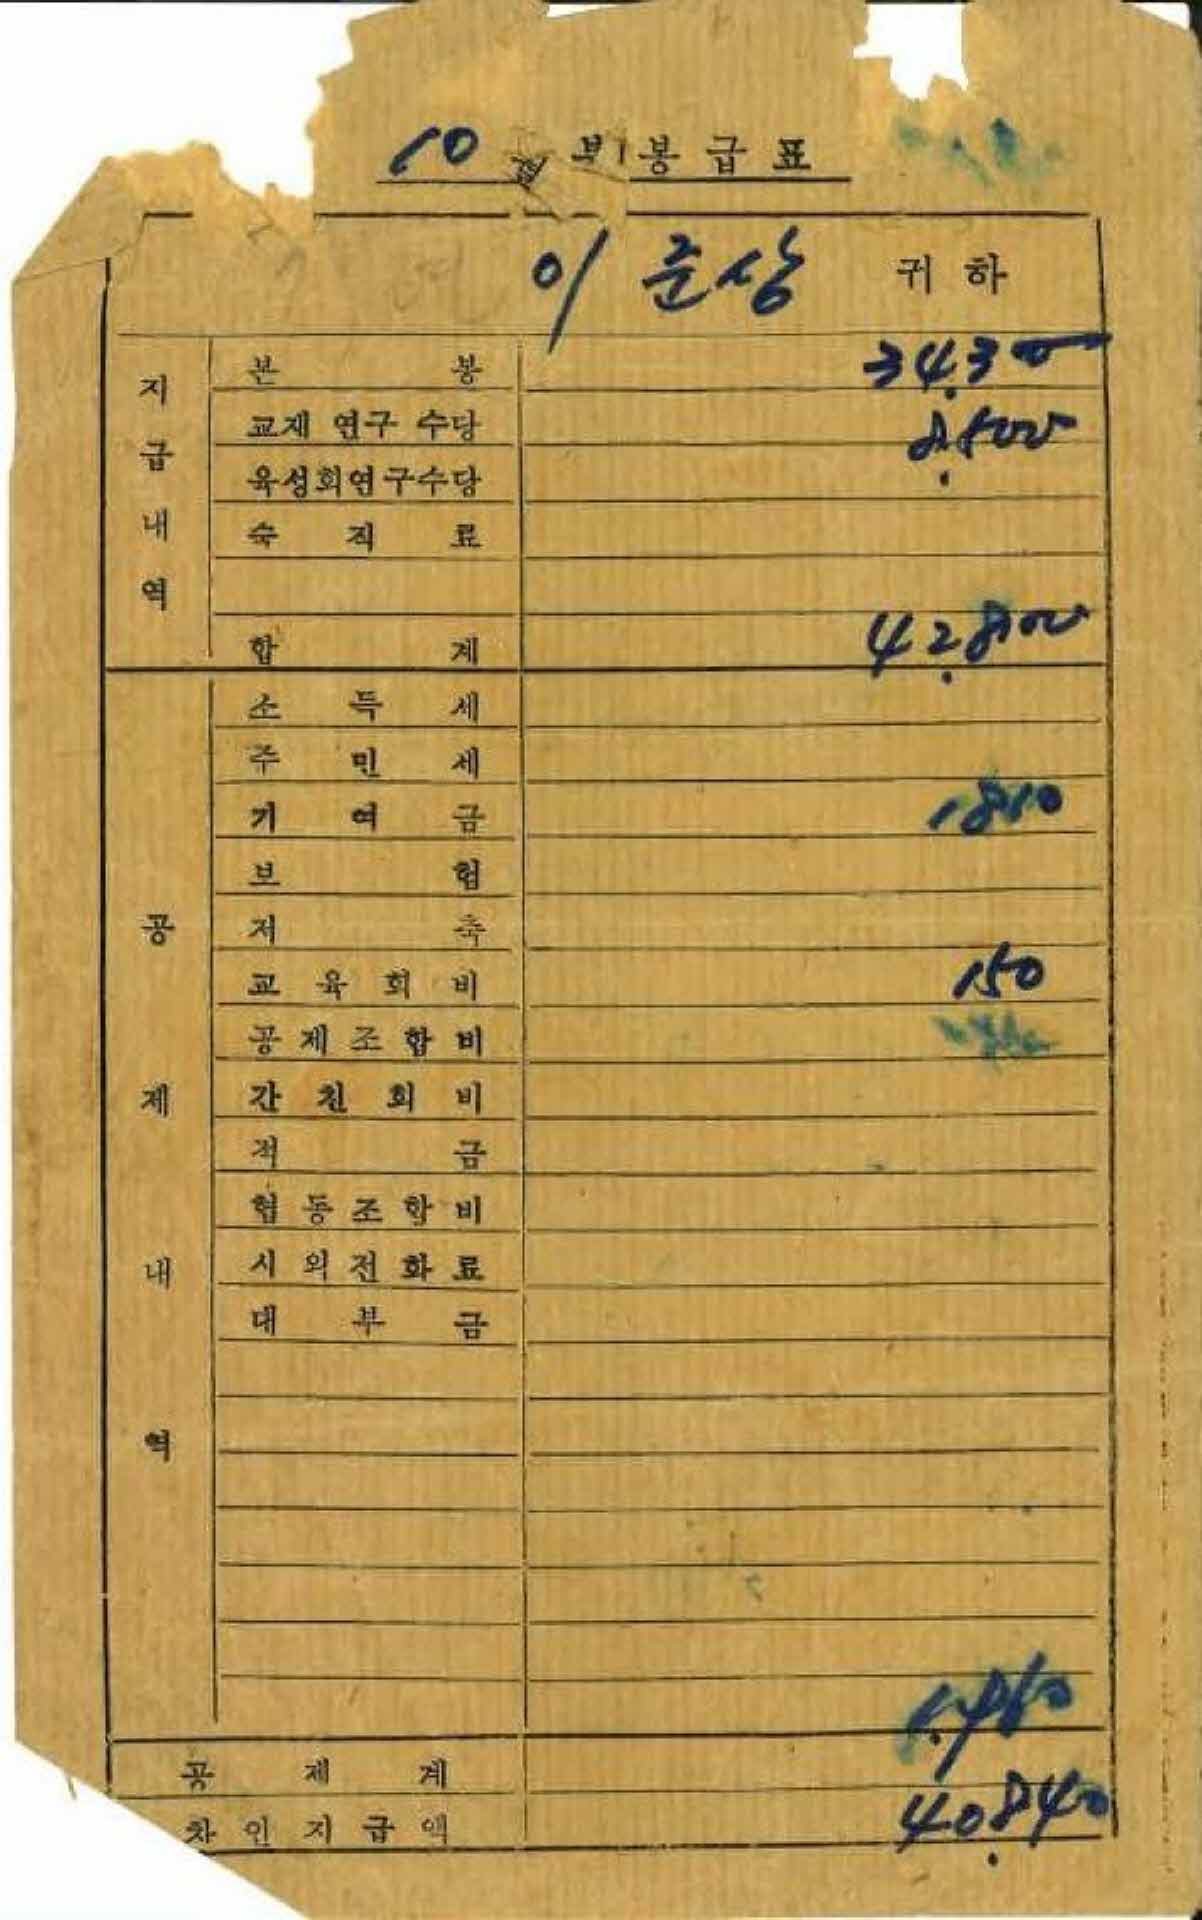 10 월 부 봉 급 표
이 준상 귀 하
지 급 내 역
본 봉 34.300
교재 연구 수당 8.500
육성회연구수당
숙 직 료
합 계 42.800
공 제 내 역
소 득 세
주 민 세
기 여 금 1810
보 험
저 축
교 육 회 비 150
공 제 조 합 비
간 친 회 비
적 금
협 동 조 합 비
시 외 전 화 료
대 부 금
공 제 계
차 인 지 급 액 40.840